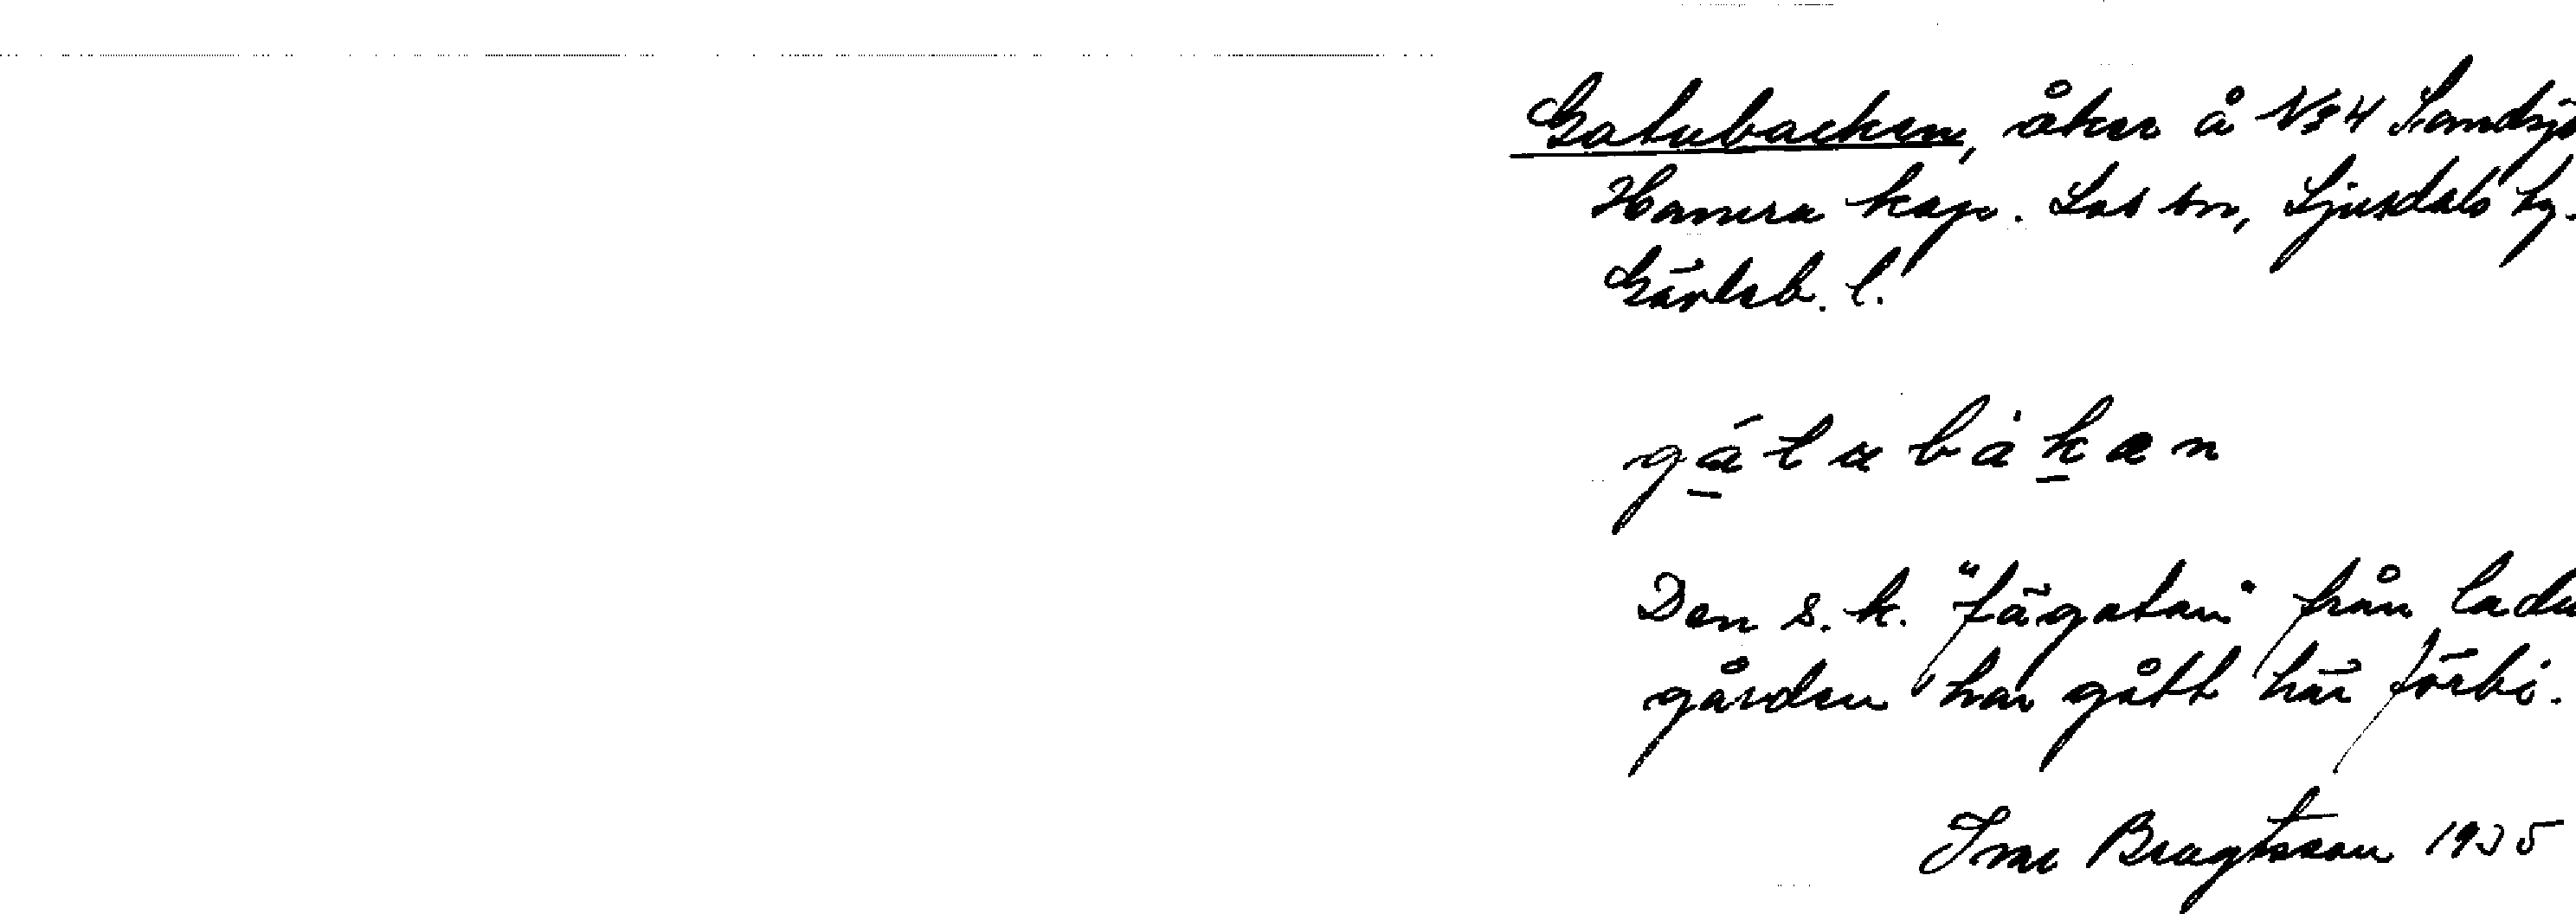 Gatubacken, åker å № 4 Sandsjö
Hamra kap. Los sn, Ljusdals hg.
Gävleb. l.
gátubàkan
Den s.k. "fägatan" från ladu
gården har gått här förbi.
Bengtsson 1935